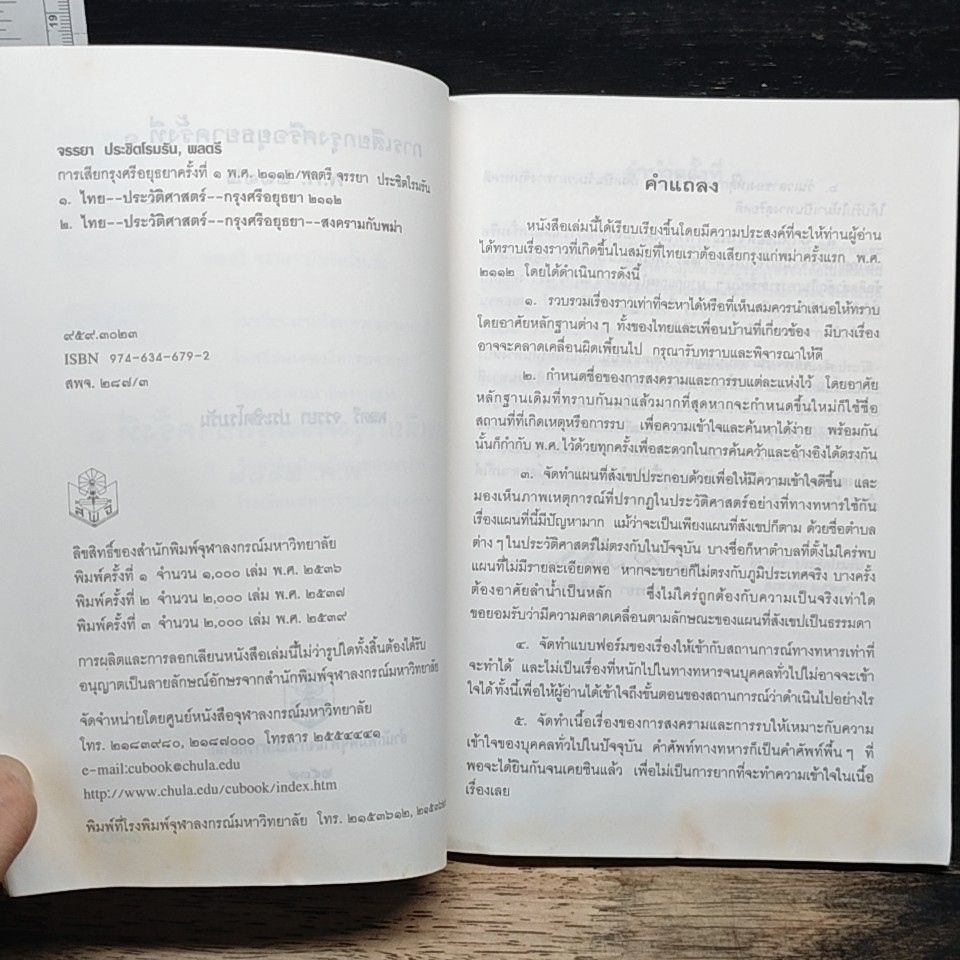 19
จรรยา ประชิตโรมรัน, พลตรี
การเสียกรุงศรีอยุธยาครั้งที่ ๑ พ.ศ. ๒๑๑๒/พลตรี จรรยา ประชิตโรมรัน
๑. ไทย--ประวัติศาสตร์--กรุงศรีอยุธยา ๒๑๑๒
๒. ไทย--ประวัติศาสตร์--กรุงศรีอยุธยา--สงครามกับพม่า
๙๕๙.๓๐๒๓
ISBN 974-634-679-2
สพจ. ๒๘๗/๓
ลิขสิทธิ์ของสำนักพิมพ์จุฬาลงกรณ์มหาวิทยาลัย
พิมพ์ครั้งที่ ๑ จำนวน ๑,๐๐๐ เล่ม พ.ศ. ๒๕๓๖
พิมพ์ครั้งที่ ๒ จำนวน ๒,๐๐๐ เล่ม พ.ศ. ๒๕๓๗
พิมพ์ครั้งที่ ๓ จำนวน ๒,๐๐๐ เล่ม พ.ศ. ๒๕๓๙
การผลิตและการลอกเลียนหนังสือเล่มนี้ไม่ว่ารูปใดทั้งสิ้นต้องได้รับ
อนุญาตเป็นลายลักษณ์อักษรจากสำนักพิมพ์จุฬาลงกรณ์มหาวิทยาลัย
จัดจำหน่ายโดยศูนย์หนังสือจุฬาลงกรณ์มหาวิทยาลัย
โทร. ๒๑๘๓๙๘๐, ๒๑๘๗๐๐๐ โทรสาร ๒๕๕๔๔๔๑
e-mail:cubook@chula.edu
http://www.chula.edu/cubook/index.htm
พิมพ์ที่โรงพิมพ์จุฬาลงกรณ์มหาวิทยาลัย โทร. ๒๑๕๓๖๑๒,
คำแถลง
หนังสือเล่มนี้ได้เรียบเรียงขึ้นโดยมีความประสงค์ที่จะให้ท่านผู้อ่าน
ได้ทราบเรื่องราวที่เกิดขึ้นในสมัยที่ไทยเราต้องเสียกรุงแก่พม่าครั้งแรก พ.ศ.
๒๑๑๒ โดยได้ดำเนินการดังนี้
๑. รวบรวมเรื่องราวเท่าที่จะหาได้หรือที่เห็นสมควรนำเสนอให้ทราบ
โดยอาศัยหลักฐานต่างๆ ทั้งของไทยและเพื่อนบ้านที่เกี่ยวข้อง มีบางเรื่อง
อาจจะคลาดเคลื่อนผิดเพี้ยนไป กรุณารับทราบและพิจารณาให้ดี
๒. กำหนดชื่อของการสงครามและการรบแต่ละแห่งไว้ โดยอาศัย
หลักฐานเดิมที่ทราบกันมาแล้วมากที่สุดหากจะกำหนดขึ้นใหม่ก็ใช้ชื่อ
สถานที่ที่เกิดเหตุหรือการรบ เพื่อความเข้าใจและค้นหาได้ง่าย พร้อมกัน
นั้นก็กำกับ พ.ศ. ไว้ด้วยทุกครั้งเพื่อสะดวกในการค้นคว้าและอ้างอิงได้ตรงกัน
๓. จัดทำแผนที่สังเขปประกอบด้วยเพื่อให้มีความเข้าใจดีขึ้น และ
มองเห็นภาพเหตุการณ์ที่ปรากฏในประวัติศาสตร์อย่างที่ทางทหารใช้กัน
เรื่องแผนที่นี้มีปัญหามาก แม้ว่าจะเป็นเพียงแผนที่สังเขปก็ตาม ด้วยชื่อตำบล
ต่างๆ ในประวัติศาสตร์ไม่ตรงกับในปัจจุบัน บางชื่อก็หาตำบลที่ตั้งไม่ใคร่พบ
แผนที่ไม่มีรายละเอียดพอ หากจะขยายก็ไม่ตรงกับภูมิประเทศจริง บางครั้ง
ต้องอาศัยลำน้ำเป็นหลัก ซึ่งไม่ใคร่ถูกต้องกับความเป็นจริงเท่าใด
ขอยอมรับว่ามีความคลาดเคลื่อนตามลักษณะของแผนที่สังเขปเป็นธรรมดา
๔. จัดทำแบบฟอร์มของเรื่องให้เข้ากับสถานการณ์ทางทหารเท่าที่
จะทำได้ และไม่เป็นเรื่องที่หนักไปในทางทหารจนบุคคลทั่วไปไม่อาจจะเข้า
ใจได้ ทั้งนี้เพื่อให้ผู้อ่านได้เข้าใจถึงขั้นตอนของสถานการณ์ว่าดำเนินไปอย่างไร
๕. จัดทำเนื้อเรื่องของการสงครามและการรบให้เหมาะกับความ
เข้าใจของบุคคลทั่วไปในปัจจุบัน คำศัพท์ทางทหารก็เป็นคำศัพท์พื้นๆ ที่
พอจะได้ยินกันจนเคยชินแล้ว เพื่อไม่เป็นการยากที่จะทำความเข้าใจในเนื้อ
เรื่องเลย